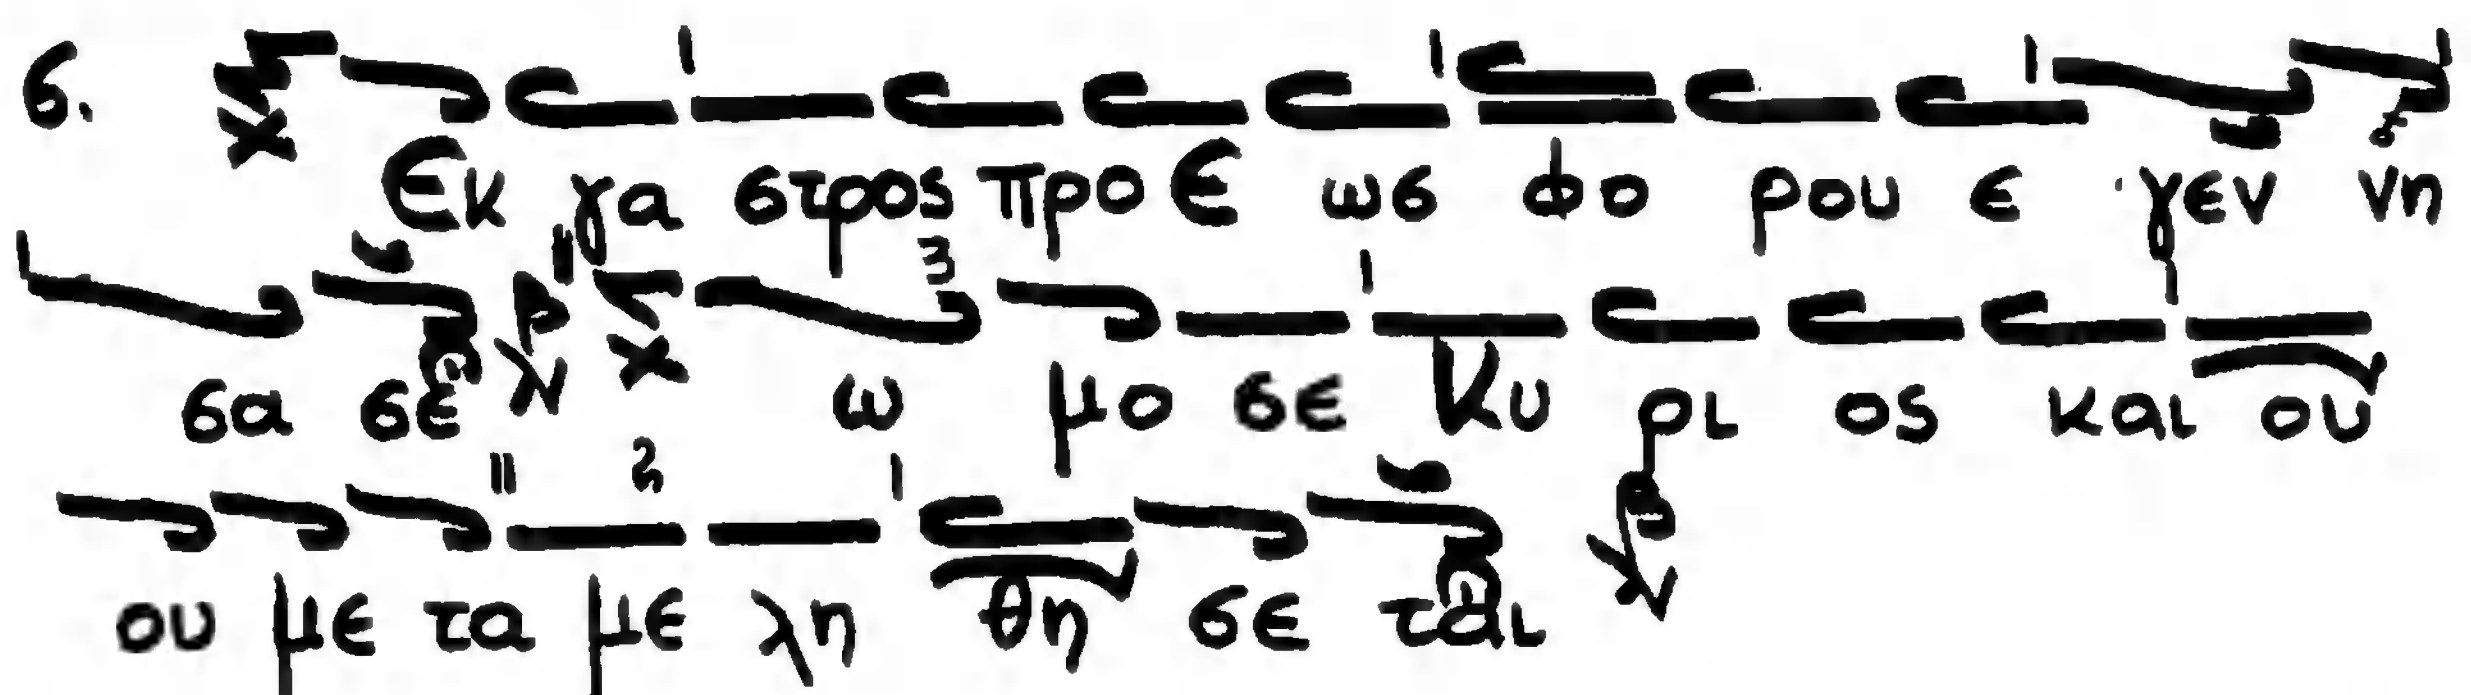 6. Εκ γα στρος προ ε ως φο ρου ε γεν νη
σα σε ω μο σε Κυ ρι ος και ου
ου με τα με λη θη σε ται